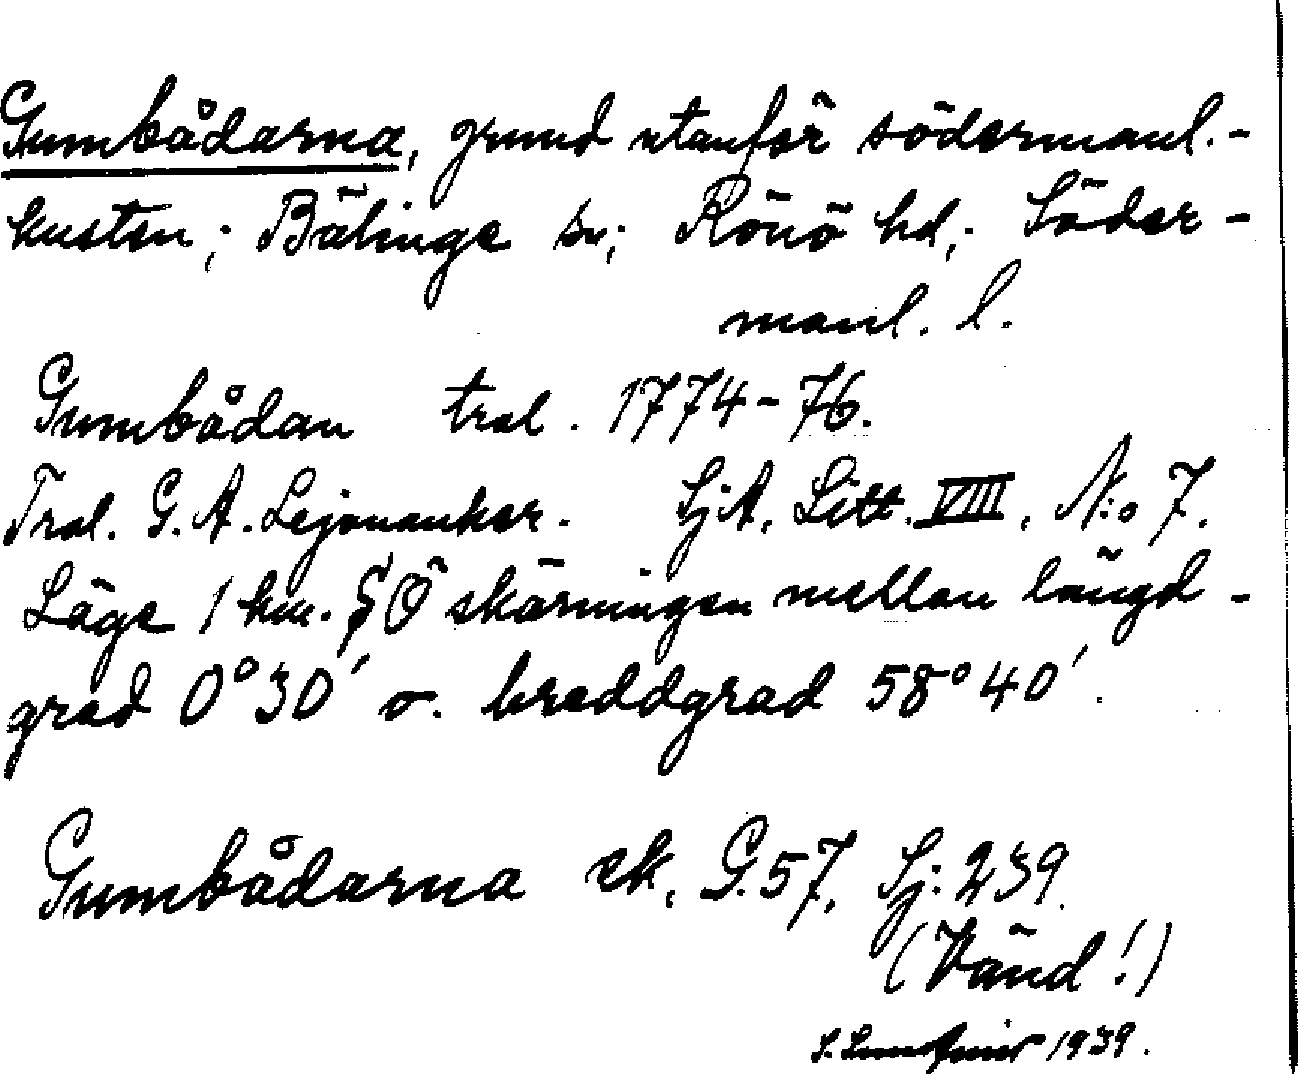 Gumbådarna, grund utanför södermanl.-
kusten; Bälinge sn; Rönö hd; Söder-
manl. l.
Gumbådan tral. 1774-76.
Tral. G. A. Lejonanker. SjA. Litt. VIII, N:o 7.
Läge 1 km. SÖ skärningen mellan längd-
grad 0°30′ o. breddgrad 58°40′.
Gumbådarna ek. G.57, Sj: 239.
(Vänd!)
S. 1939.